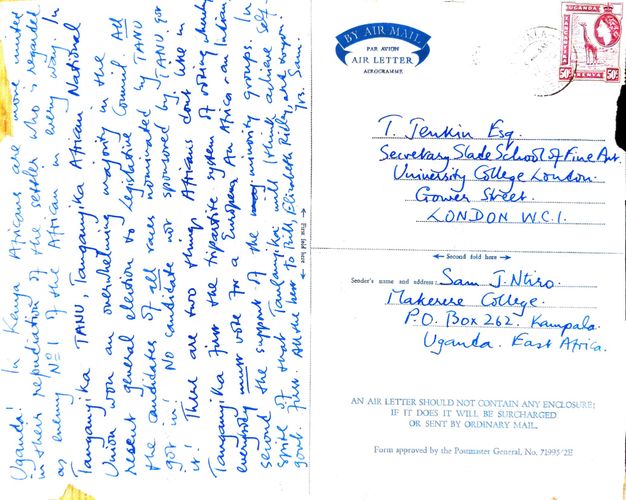 Uganda! In Kenya Africans are more united
in their repudiation of the settler who is regarded
as enemy No 1 of the African in every way. In
Tanganyika TANU, Tanganyika African National
Union won an overwhelming majority in the
recent general election to Legislative Council. All
the candidates of all races nominated by TANU
got in! No candidate not sponsored by TANU got
it! There are two things Africans don't like in
Tanganyika first the tripartite system of voting whereby
everybody must vote for a European, An African - an Indian
second the support of the minority groups. In
spite of that Tanganyika will I think achieve Self-
govt. first. All the best to Elizabeth and
Yrs. Sam
First fold here
BY AIR MAIL
PAR AVION
AIR LETTER
AEROGRAMME
UGANDA
KENYA
50c
50c
T. Jenkin Esq.
Secretary Slade School of Fine Art.
University College London.
Gower Street.
LONDON W.C.1.
Second fold here
Sender's name and address: Sam J. Ntiro.
Makerere College.
P.O. Box 262. Kampala.
Uganda. East Africa.
AN AIR LETTER SHOULD NOT CONTAIN ANY ENCLOSURE;
IF IT DOES IT WILL BE SURCHARGED
OR SENT BY ORDINARY MAIL.
Form approved by the Postmaster General, No. 71995/2E